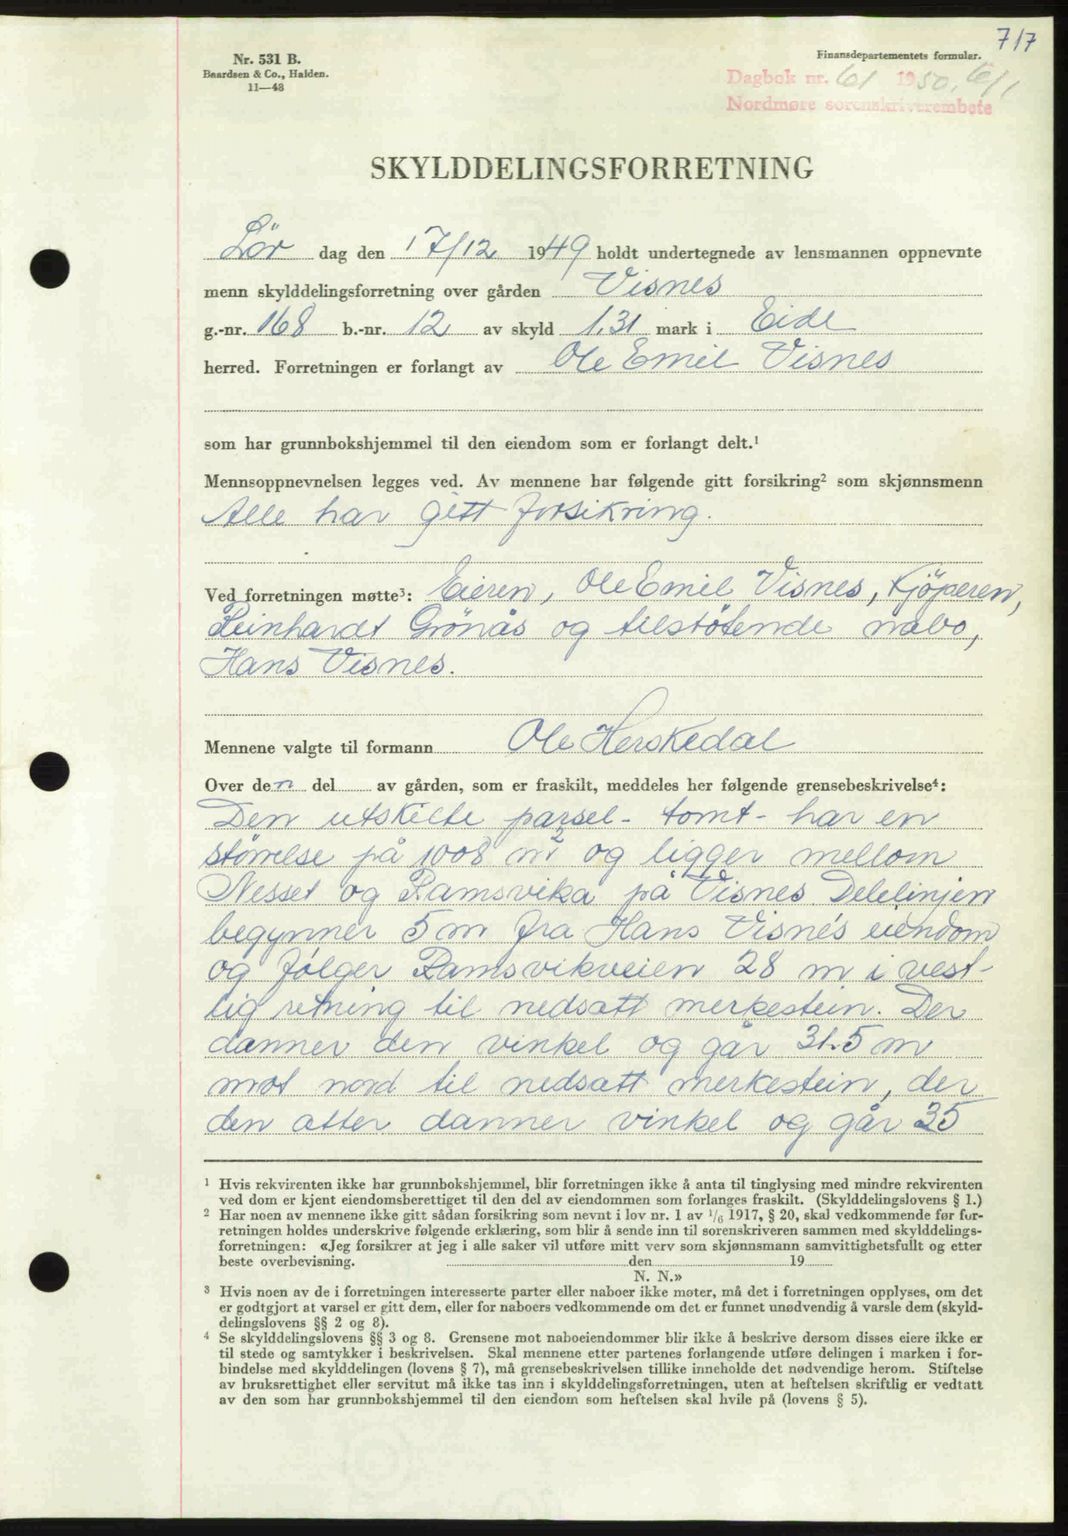 717
Nr. 531 B.
Baardsen & Co., Halden.
11—48
Finansdepartementets formular.
Dagbok nr. 61 1950, 6/1
Nordmøre sorenskriverembete
SKYLDDELINGSFORRETNING
Lör dag den 17/12 1949 holdt undertegnede av lensmannen oppnevnte
menn skylddelingsforretning over gården Visnes
g.-nr. 168 b.-nr. 12 av skyld 1.31 mark i Eide
herred. Forretningen er forlangt av Ole Emil Visnes
som har grunnbokshjemmel til den eiendom som er forlangt delt.¹
Mennsoppnevnelsen legges ved. Av mennene har følgende gitt forsikring² som skjønnsmenn
Alle har gitt forsikring.
Ved forretningen møtte³: Eieren, Ole Emil Visnes, Kjöperen,
Reinhardt Grönås og tilstötende nabo,
Hans Visnes.
Mennene valgte til formann Ole Herskedal
Over den del av gården, som er fraskilt, meddeles her følgende grensebeskrivelse⁴:
Den utskilte parsel - tomt - har en
störrelse på 1008 m² og ligger mellom
Nesset og Ramsvika på Visnes. Delelinjen
begynner 5 m fra Hans Visnés eiendom
og fölger Ramsvikveien 28 m i vest-
lig retning til nedsatt merkestein. Der
danner den vinkel og går 31.5 m
mot nord til nedsatt merkestein, der
den atter danner vinkel og går 35
¹ Hvis rekvirenten ikke har grunnbokshjemmel, blir forretningen ikke å anta til tinglysing med mindre rekvirenten
ved dom er kjent eiendomsberettiget til den del av eiendommen som forlanges fraskilt. (Skylddelingslovens § 1.)
² Har noen av mennene ikke gitt sådan forsikring som nevnt i lov nr. 1 av ¹/₆ 1917, § 20, skal vedkommende før for-
retningen holdes underskrive følgende erklæring, som blir å sende inn til sorenskriveren sammen med skylddelings-
forretningen: «Jeg forsikrer at jeg i alle saker vil utføre mitt verv som skjønnsmann samvittighetsfullt og etter
beste overbevisning. den 19
N. N.»
³ Hvis noen av de i forretningen interesserte parter eller naboer ikke møter, må det i forretningen opplyses, om det
er godtgjort at varsel er gitt dem, eller for naboers vedkommende om det er funnet unødvendig å varsle dem (skyld-
delingslovens §§ 2 og 8).
⁴ Se skylddelingslovens §§ 3 og 8. Grensene mot naboeiendommer blir ikke å beskrive dersom disses eiere ikke er
til stede og samtykker i beskrivelsen. Skal mennene etter partenes forlangende utføre delingen i marken i for-
bindelse med skylddelingen (lovens § 7), må grensebeskrivelsen tillike inneholde det nødvendige herom. Stiftelse
av bruksrettighet eller servitut må ikke tas inn i skylddelingsforretningen, uten at heftelsen skriftlig er vedtatt
av den som har grunnbokshjemmel til den eiendom som heftelsen skal hvile på (lovens § 5).